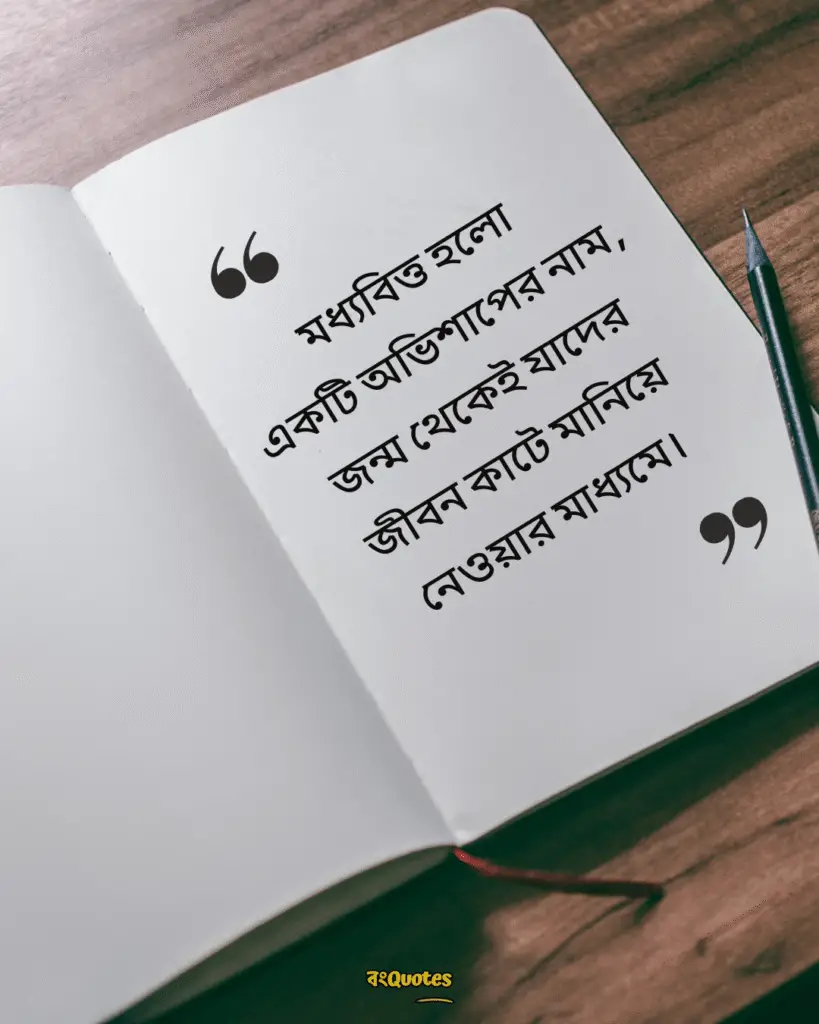 “
মধ্যবিত্ত হলো
একটি অভিশাপের নাম,
জন্ম থেকেই যাদের
জীবন কাটে মানিয়ে
নেওয়ার মাধ্যমে।
”
বংQuotes